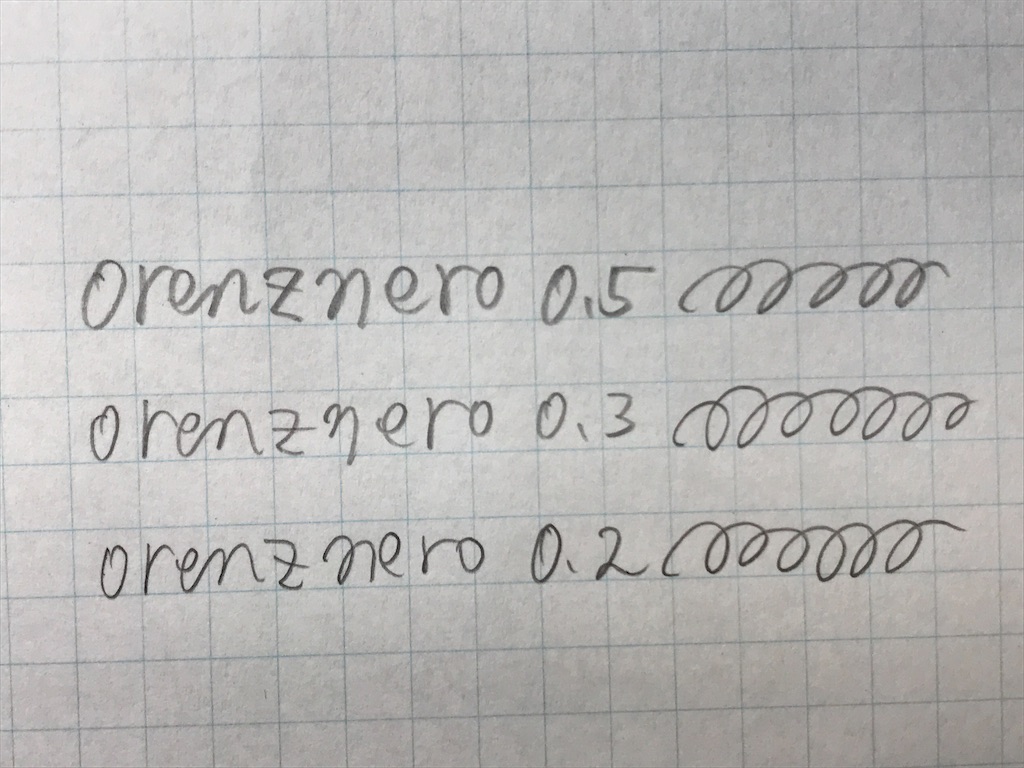 orenznero 0.5
orenznero 0.3
orenznero 0.2